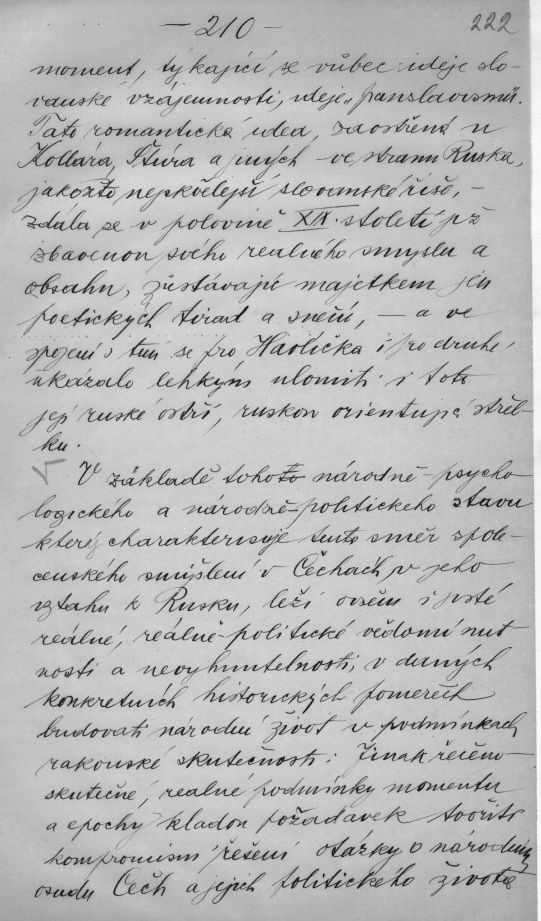 — 210 —
222
moment, týkající se vůbec ideje slo-
vanské vzájemnosti, ideje „panslavismu".
Tato romantická idea, zaostřená u
Kollára, Štúra a jiných - ve stranu Ruska,
jakožto největší slovanské říše, -
zdála se v polovině XIX. století již
zbavenou svého reálného smyslu a
obsahu, zůstávajíc majetkem jen
poetických tirad a snění, — a ve
spojení s tím se pro Havlíčka i pro druhé
ukázalo lehkým ulomiti i toto
její ruské ostří, ruskou orientující střel-
ku.
V základě tohoto národně-psycho
logického a národně-politického stavu
který charakterisuje tento směr spole-
censkeho smýšlení v Čechách, v jeho
vztahu k Rusku, leží ovšem i jisté
reálné, reálně-politické vědomí nut
nosti a nevyhnutelnosti, v daných
konkretních historických poměrech
budovati národní život v podmínkách
rakouské skutečnosti. Jinak řečeno-
skutečné, reálné podmínky momentu
a epochy kladou požadavek tvořiti
kompromisní řešení otázky o národním
osudu Čech a jejich politického života